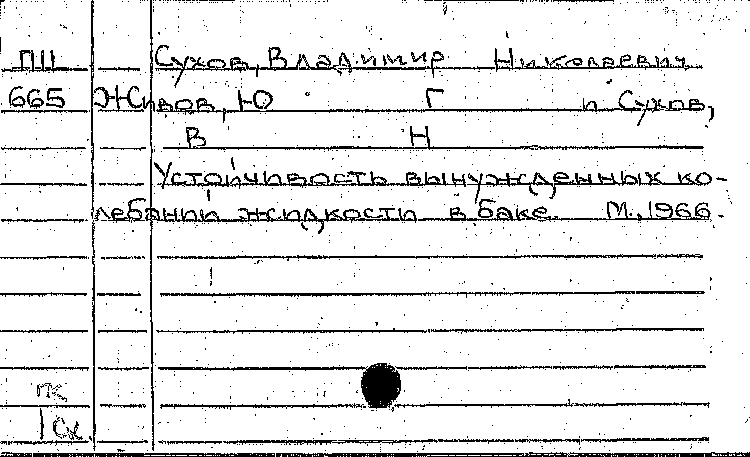 П11 Сухов, Владимир Николаевич
665 Живов, Ю Г и Сухов,
В Н
Устойчивость вынужденных ко-
лебаний жидкости в баке. М., 1966.